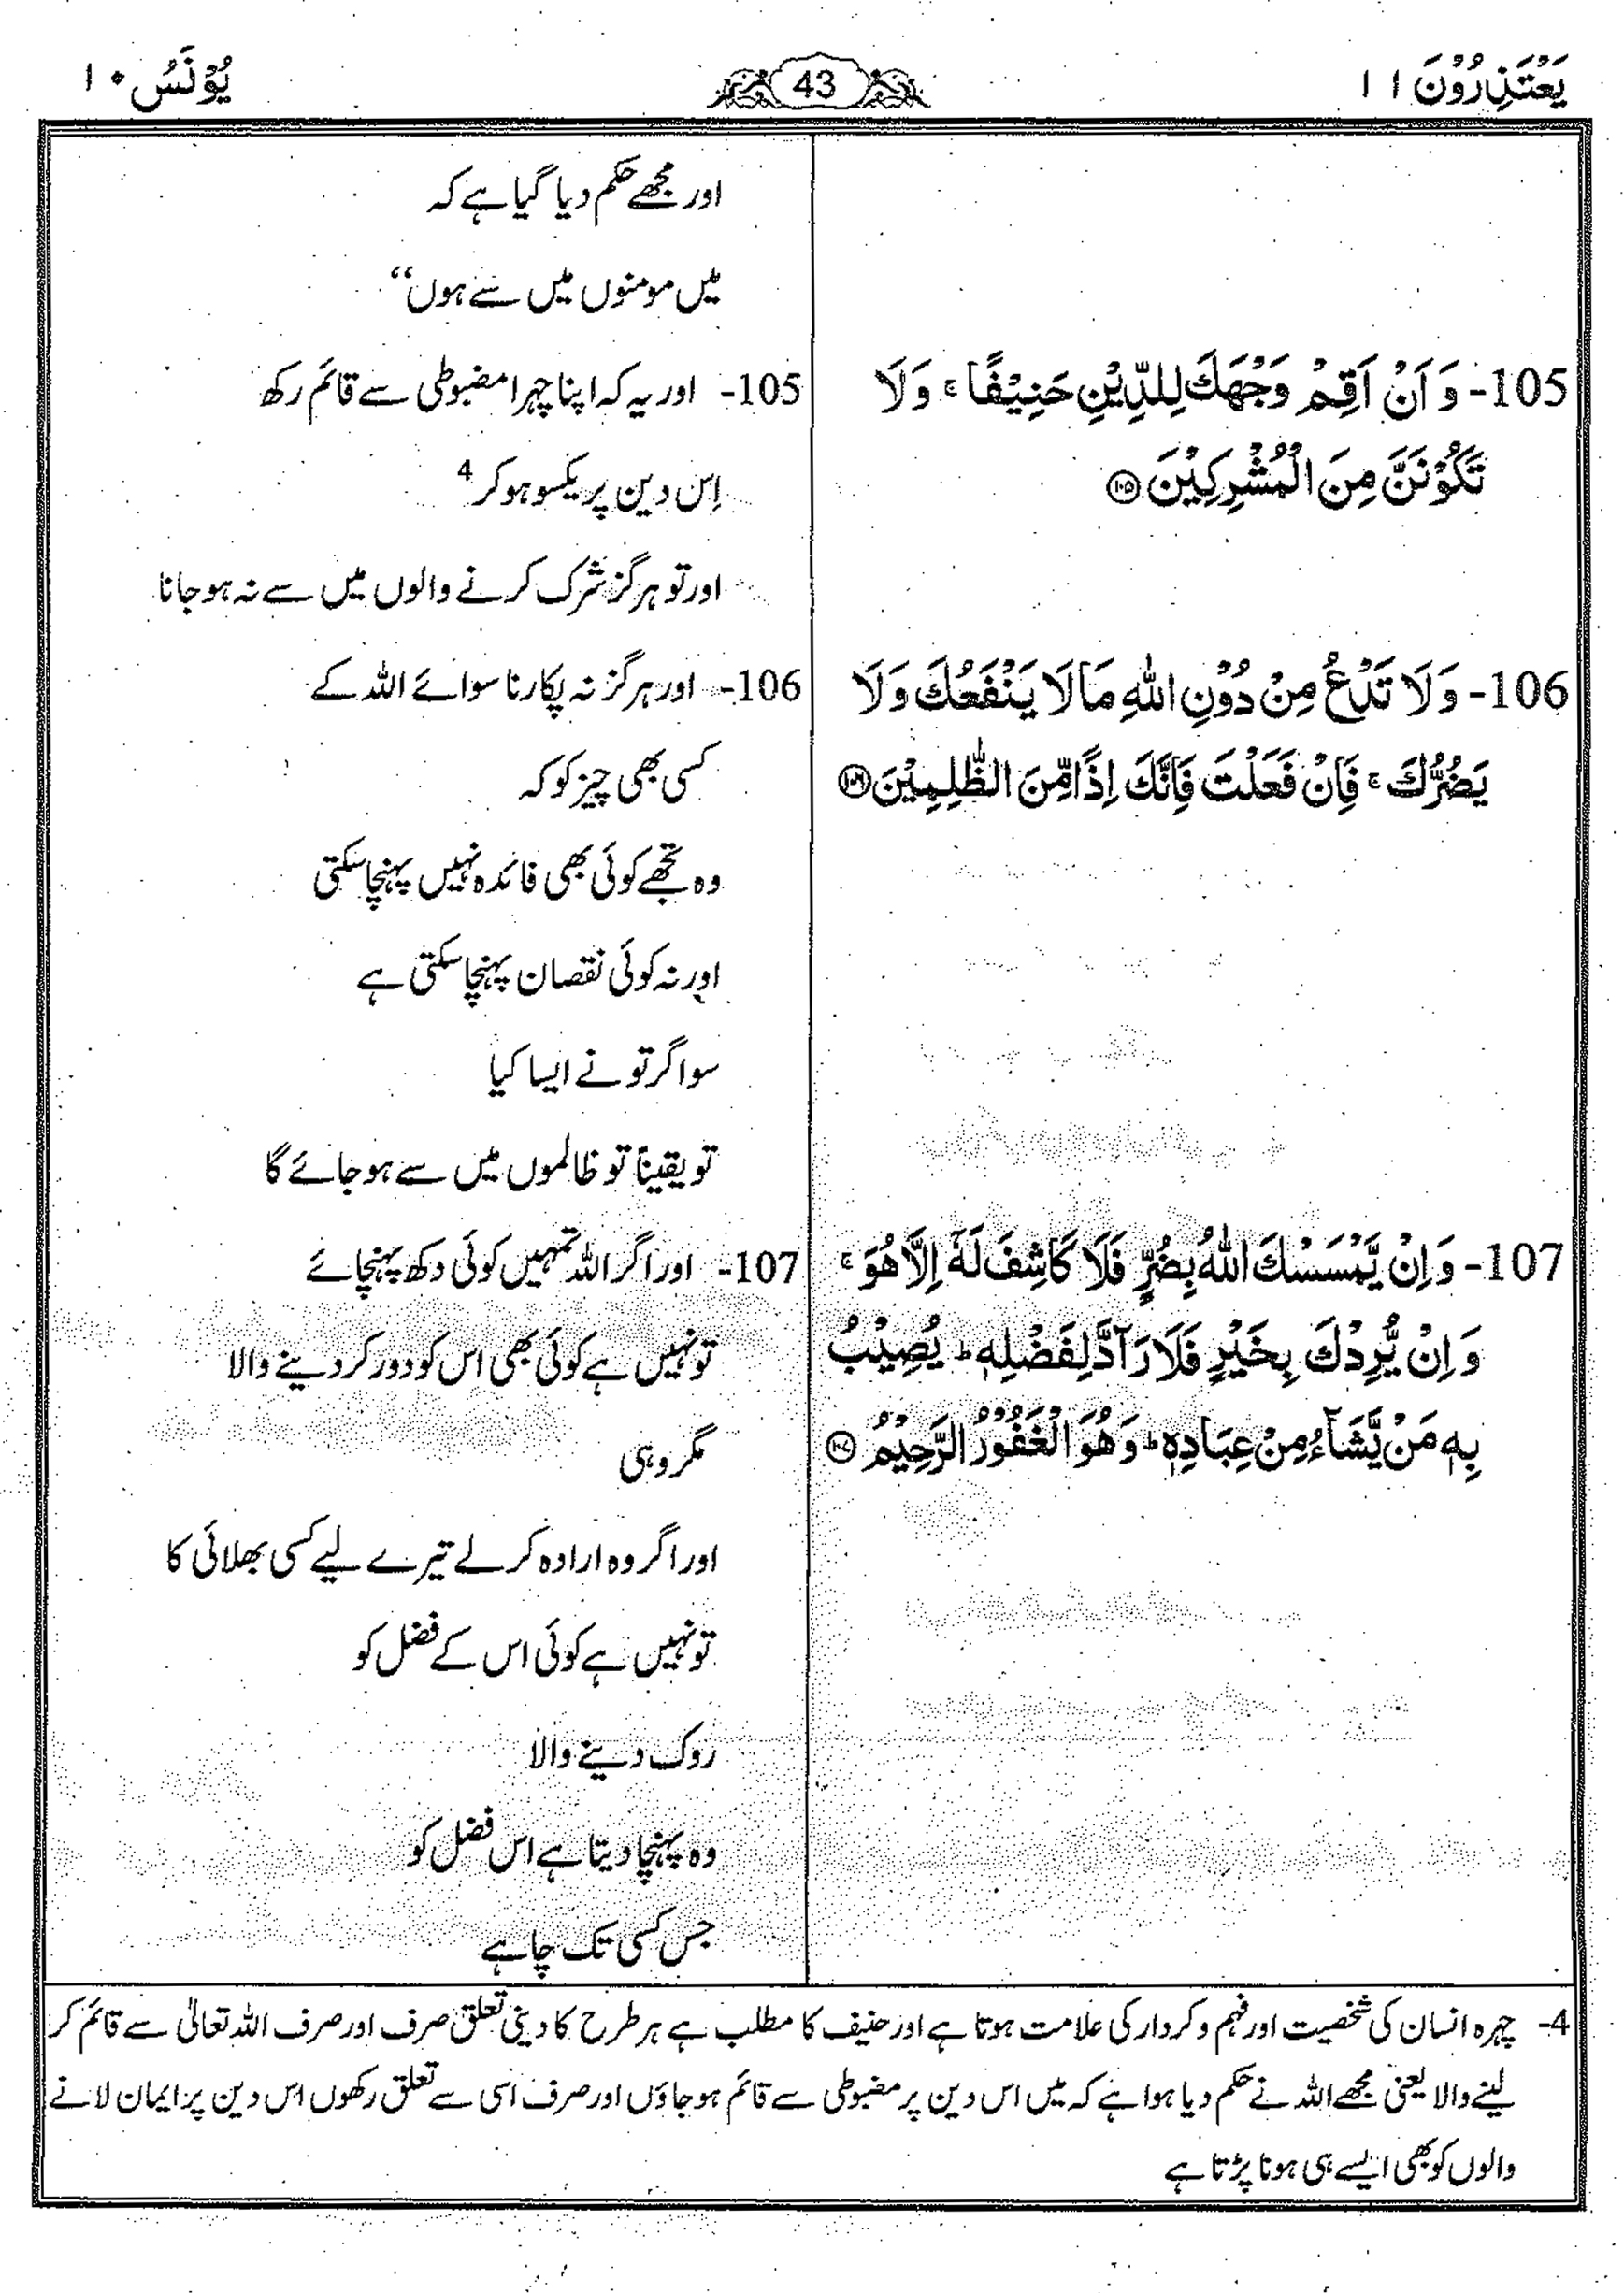 یَعْتَذِرُوْنَ ۱۱
43
یُوْنَسُ ۱۰
اور مجھے حکم دیا گیا ہے کہ
میں مومنوں میں سے ہوں“
105- وَ اَنْ اَقِمْ وَجْهَكَ لِلدِّیْنِ حَنِیْفًا ۚ وَ لَا
تَكُوْنَنَّ مِنَ الْمُشْرِكِیْنَ ﴿۱۰۵﴾
105- اور یہ کہ اپنا چہرا مضبوطی سے قائم رکھ
اِس دین پر یکسو ہو کر 4
اور تو ہرگز شرک کرنے والوں میں سے نہ ہو جانا
106- وَ لَا تَدْعُ مِنْ دُوْنِ اللّٰهِ مَا لَا یَنْفَعُكَ وَ لَا
یَضُرُّكَ ۚ فَاِنْ فَعَلْتَ فَاِنَّكَ اِذًا مِّنَ الظّٰلِمِیْنَ ﴿۱۰۶﴾
106- اور ہرگز نہ پکارنا سوائے اللہ کے
کسی بھی چیز کو کہ
وہ تجھے کوئی بھی فائدہ نہیں پہنچا سکتی
اور نہ کوئی نقصان پہنچا سکتی ہے
سو اگر تو نے ایسا کیا
تو یقیناً تو ظالموں میں سے ہو جائے گا
107- وَ اِنْ یَّمْسَسْكَ اللّٰهُ بِضُرٍّ فَلَا كَاشِفَ لَهٗۤ اِلَّا هُوَ ۚ
وَ اِنْ یُّرِدْكَ بِخَیْرٍ فَلَا رَآدَّ لِفَضْلِهٖ ؕ یُصِیْبُ
بِهٖ مَنْ یَّشَآءُ مِنْ عِبَادِهٖ ؕ وَ هُوَ الْغَفُوْرُ الرَّحِیْمُ ﴿۱۰۷﴾
107- اور اگر اللہ تمہیں کوئی دکھ پہنچائے
تو نہیں ہے کوئی بھی اس کو دور کر دینے والا
مگر وہی
اور اگر وہ ارادہ کر لے تیرے لیے کسی بھلائی کا
تو نہیں ہے کوئی اس کے فضل کو
روک دینے والا
وہ پہنچا دیتا ہے اس فضل کو
جس کسی تک چاہے
4- چہرہ انسان کی شخصیت اور فہم و کردار کی علامت ہوتا ہے اور حنیف کا مطلب ہے ہر طرح کا دینی تعلق صرف اور صرف اللہ تعالٰی سے قائم کر
لینے والا یعنی مجھے اللہ نے حکم دیا ہوا ہے کہ میں اس دین پر مضبوطی سے قائم ہو جاؤں اور صرف اسی سے تعلق رکھوں اس دین پر ایمان لانے
والوں کو بھی ایسے ہی ہونا پڑتا ہے